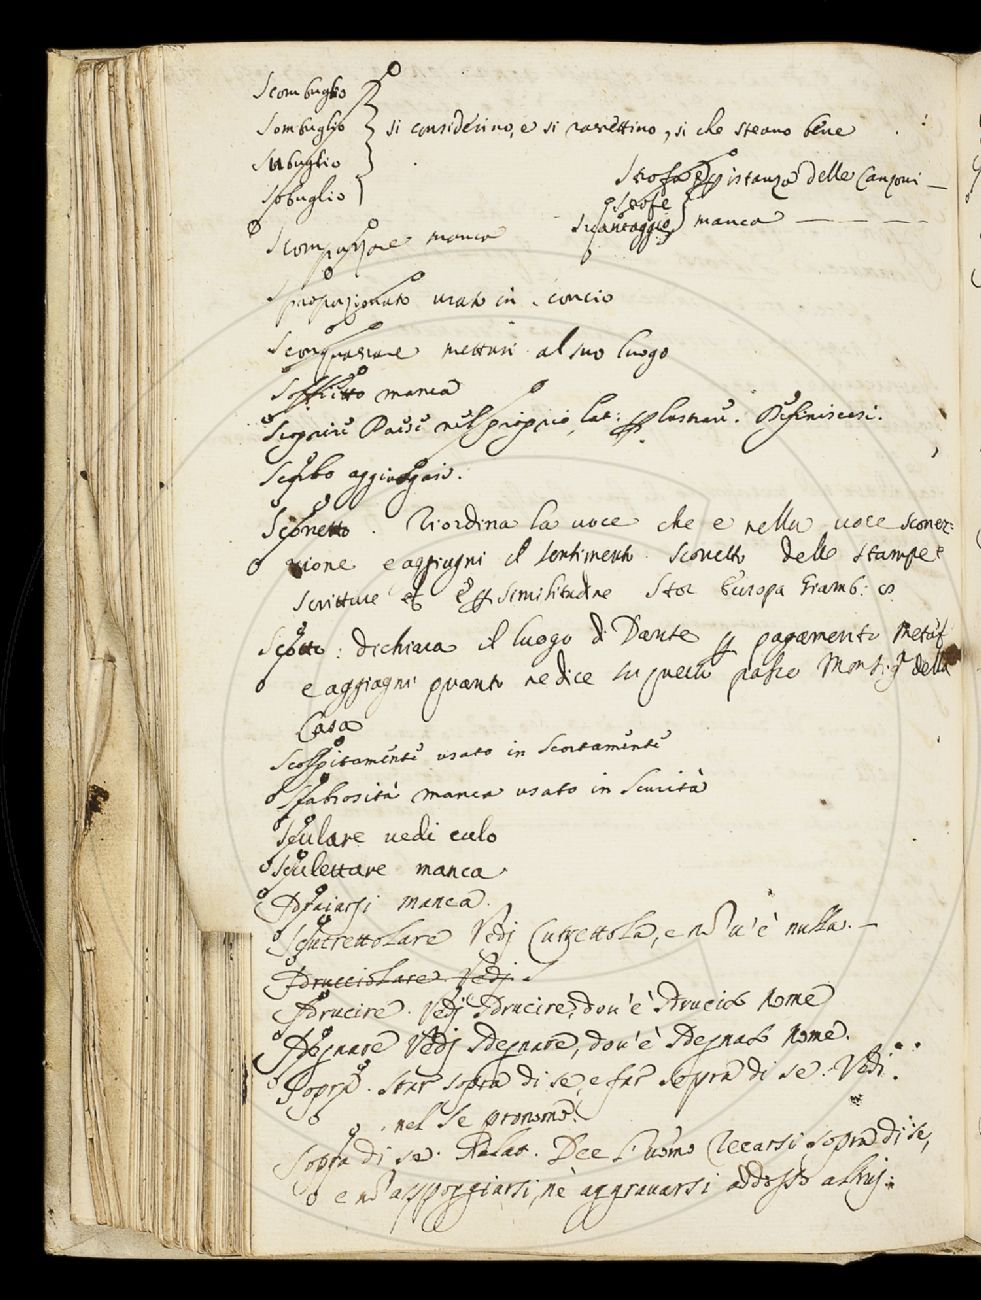 Scombuglio
Sombuglio
Subuglio
Sobuglio
si considerino, e si rassettino, sì che steano bene
Strofa p istanza delle Canzoni
Strofe
Svantaggio
manca
Scompassare manca
Sproporzionato usato in Sconcio
Sconquassare mettasi al suo luogo
Soffritto manca
Scoprire Paesi nel proprio, lat: lustrare. Definiscasi.
aggiungasi.
Sconetto. Riordina la uoce che e nella uoce sconez:
zione e aggiugni il sentimento sconetto delle stampe e
scritture et p similitudine Stor Europa Giamb: 8.
Scotto: dichiara il luogo di Dante p pagamento metaf
e aggiugni quanto ne dice su quello passo Mons:r della
Casa
usato in Scortamente
Scabrosità manca usato in Scurità
Sculare uedi culo
Sculettare manca
Sdraiarsi manca.
Scutrettolare Vedj Cutrettola, e nō u'è nulla.
Sdrucciolare Vedj.
Sdrucire. Vedj Sdrucire, dou'è Sdrucio Nome
Sdegnare Vedj Sdegnare, dou'è Sdegnato Nome.
Sopra. star sopra di se, e far sopra di se. Vedi
nel Se pronome
Sopra di se. Galat. Dee l'uomo recarsi sopra di se,
e nō appoggiarsi, nè aggrauarsi addosso altruj.